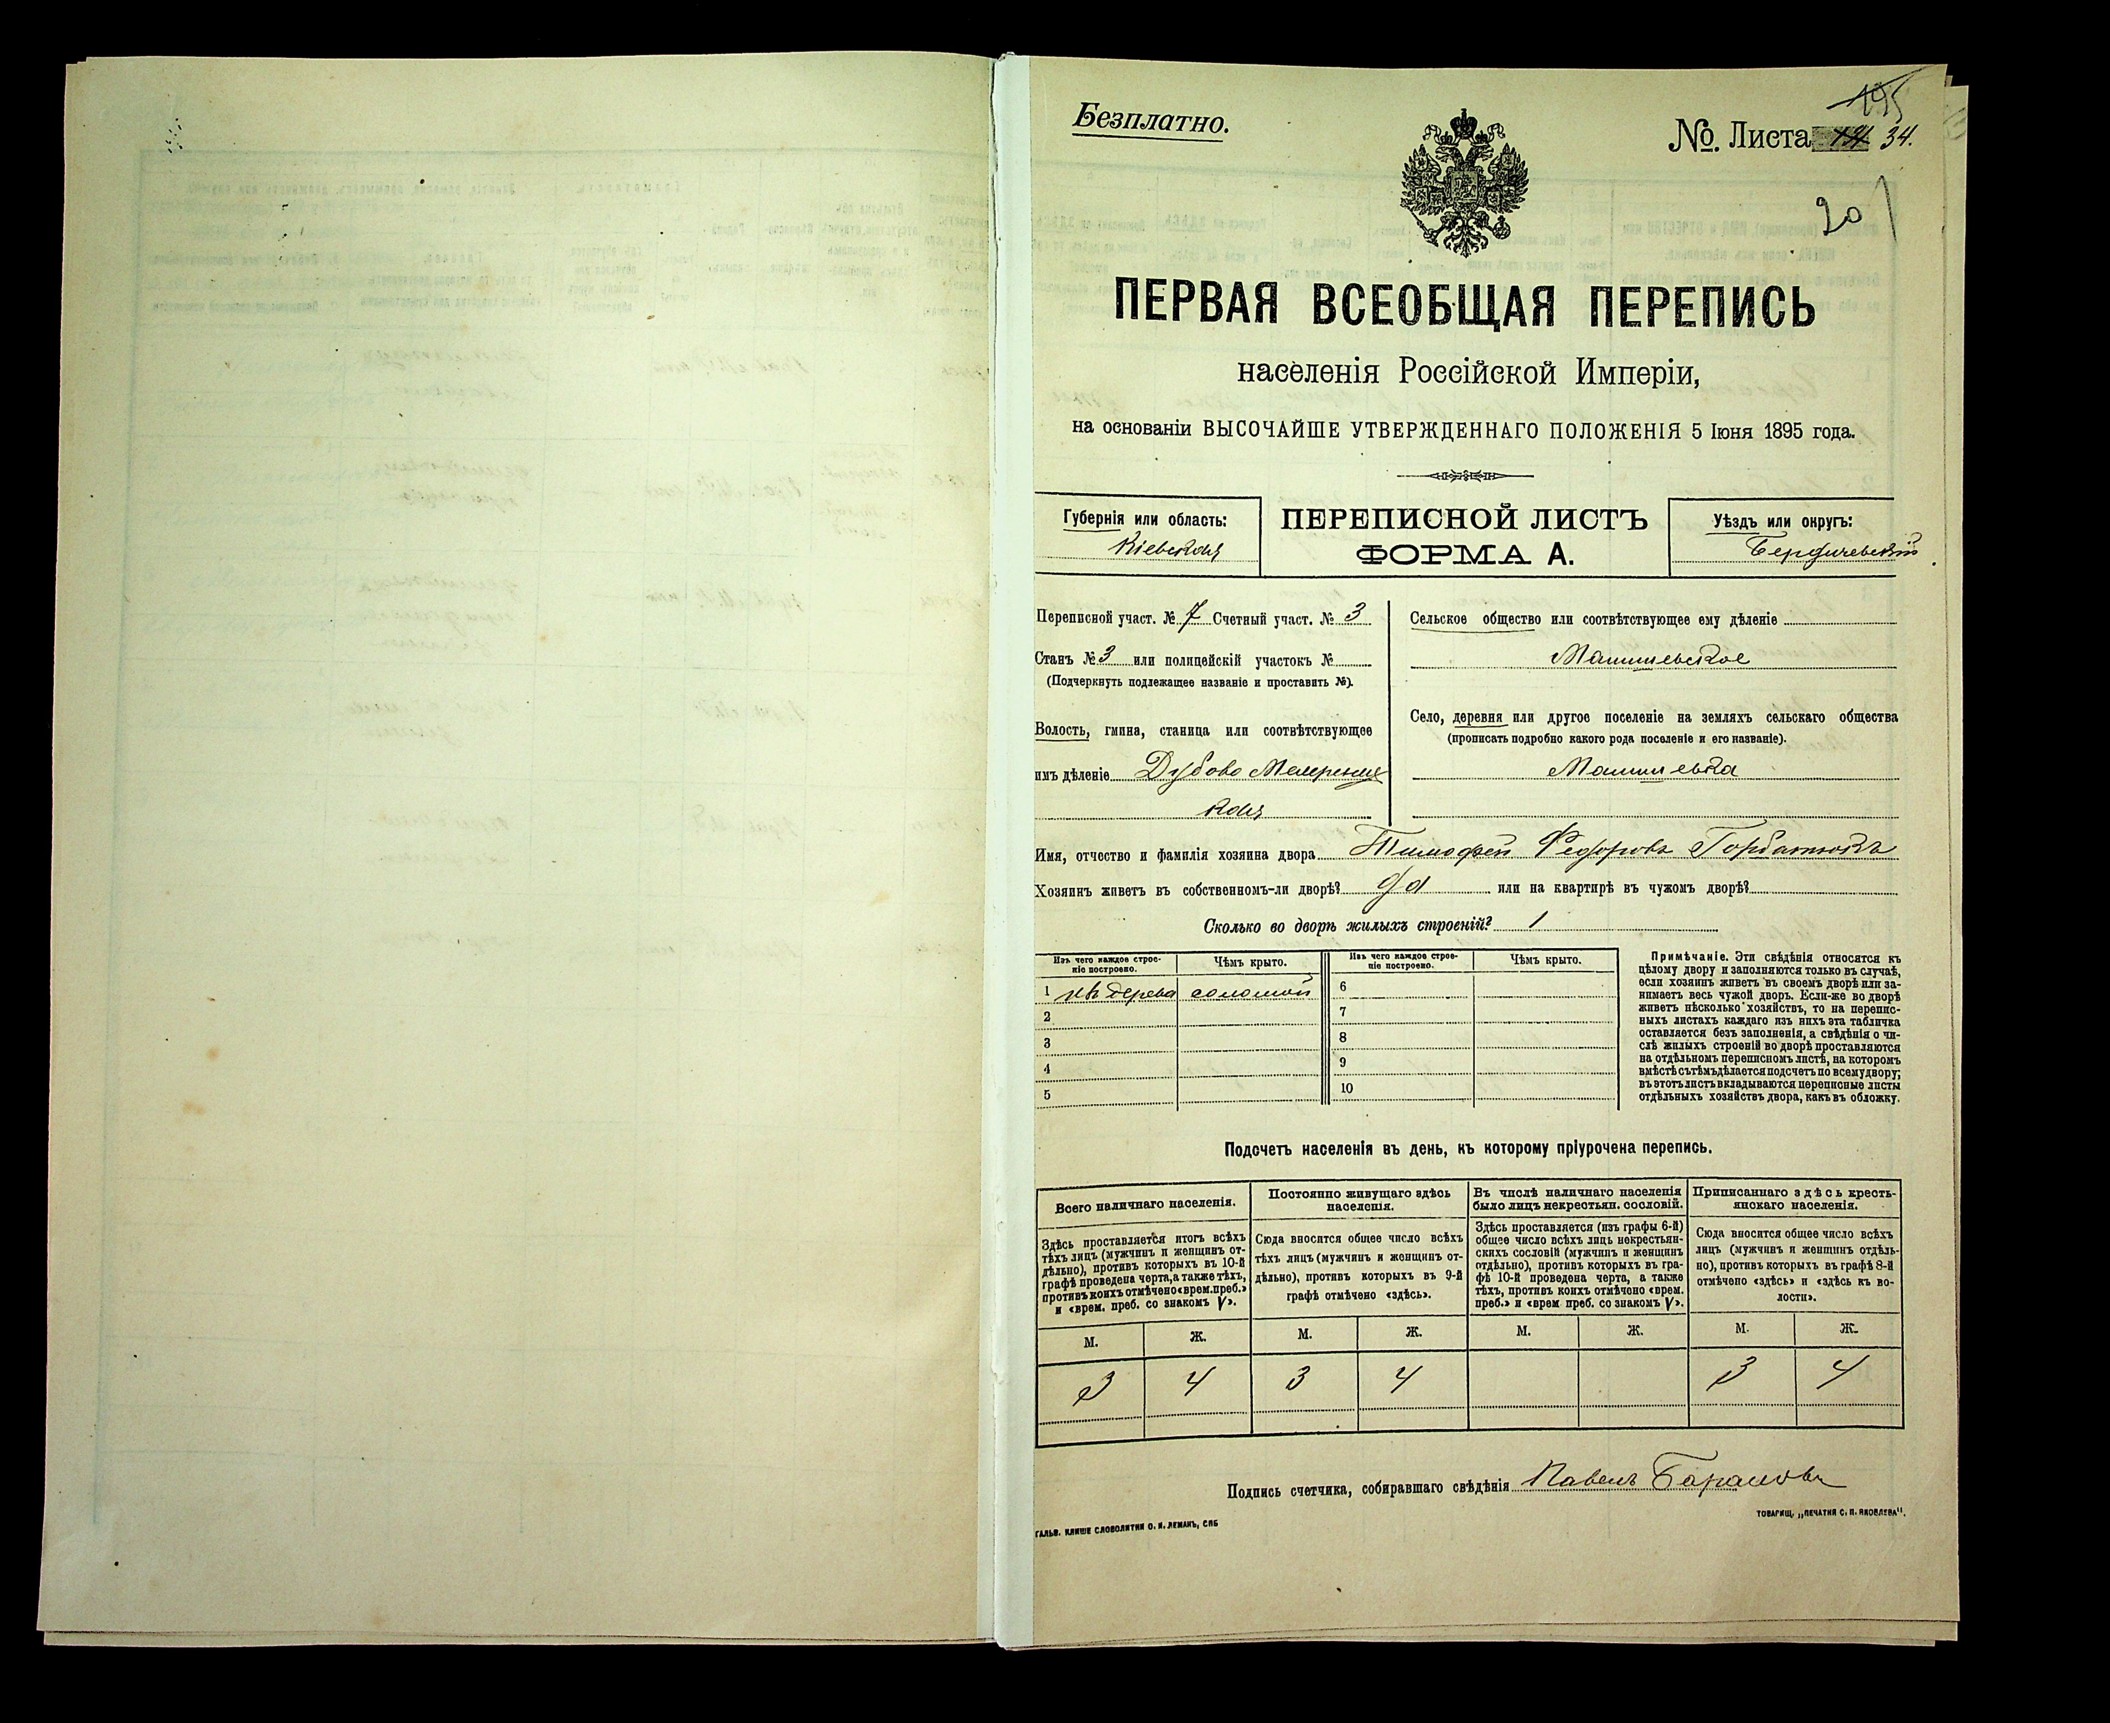 Безплатно.
195
№. Листа 34.
20
ПЕРВАЯ ВСЕОБЩАЯ ПЕРЕПИСЬ
населенія Россійской Имперіи,
на основаніи ВЫСОЧАЙШЕ УТВЕРЖДЕННАГО ПОЛОЖЕНІЯ 5 Іюня 1895 года.
Губернія или область:
Кіевская
ПЕРЕПИСНОЙ ЛИСТЪ
ФОРМА А.
Уѣздъ или округъ:
Бердичевскій
Переписной участ. № 7 Счетный участ. № 3
Станъ № 3 или полицейскій участокъ №
(Подчеркнуть подлежащее названіе и проставить №).
Волость, гмина, станица или соотвѣтствующее
имъ дѣленіе Дубово Мехеринец
кая
Сельское общество или соотвѣтствующее ему дѣленіе
Мшанецкое
Село, деревня или другое поселеніе на земляхъ сельскаго общества
(прописать подробно какого рода поселеніе и его названіе).
Имя, отчество и фамилія хозяина двора Тимофей Федоровъ Горбатюкъ
Хозяинъ живетъ въ собственномъ-ли дворѣ? да или на квартирѣ въ чужомъ дворѣ?
Сколько во дворѣ жилыхъ строеній? 1
Изъ чего каждое строе-
ніе построено.
Чѣмъ крыто.
Изъ чего каждое строе-
ніе построено.
Чѣмъ крыто.
1 изъ дерева соломой 6
2 7
3 8
4 9
5 10
Примѣчаніе. Эти свѣдѣнія относятся къ
цѣлому двору и заполняются только въ случаѣ,
если хозяинъ живетъ въ своемъ дворѣ или за-
нимаетъ весь чужой дворъ. Если-же во дворѣ
живетъ нѣсколько хозяйствъ, то на перепис-
ныхъ листахъ каждаго изъ нихъ эта табличка
оставляется безъ заполненія, а свѣдѣнія о чи-
слѣ жилыхъ строеній во дворѣ проставляются
на отдѣльномъ переписномъ листѣ, на которомъ
вмѣстѣ съ тѣмъ дѣлается подсчетъ по всему двору;
въ этотъ листъ вкладываются переписные листы
отдѣльныхъ хозяйствъ двора, какъ въ обложку.
Подсчетъ населенія въ день, къ которому пріурочена перепись.
Всего наличнаго населенія.
Здѣсь проставляется итогъ всѣхъ
тѣхъ лицъ (мужчинъ и женщинъ от-
дѣльно), противъ которыхъ въ 10-й
графѣ проведена черта, а также тѣхъ,
противъ коихъ отмѣчено «врем. преб.»
и «врем. преб. со знакомъ V».
Постоянно живущаго здѣсь
населенія.
Сюда вносится общее число всѣхъ
тѣхъ лицъ (мужчинъ и женщинъ от-
дѣльно), противъ которыхъ въ 9-й
графѣ отмѣчено «здѣсь».
Въ числѣ наличнаго населенія
было лицъ некрестьян. сословій.
Здѣсь проставляется (изъ графы 6-й)
общее число всѣхъ лицъ некрестьян-
скихъ сословій (мужчинъ и женщинъ
отдѣльно), противъ которыхъ въ гра-
фѣ 10-й проведена черта, а также
тѣхъ, противъ коихъ отмѣчено «врем.
преб.» и «врем преб. со знакомъ V».
Приписаннаго здѣсь кресть-
янскаго населенія.
Сюда вносится общее число всѣхъ
лицъ (мужчинъ и женщинъ отдѣль-
но), противъ которыхъ въ графѣ 8-й
отмѣчено «здѣсь» и «здѣсь къ во-
лости».
М. Ж. М. Ж. М. Ж. М. Ж.
3 4 3 4 3 4
Подпись счетчика, собиравшаго свѣдѣнія Павелъ Барановъ
ГАЛЬВ. КЛИШЕ СЛОВОЛИТНИ О. И. ЛЕМАНЪ, СПБ
ТОВАРИЩ. „ПЕЧАТНЯ С. П. ЯКОВЛЕВА".